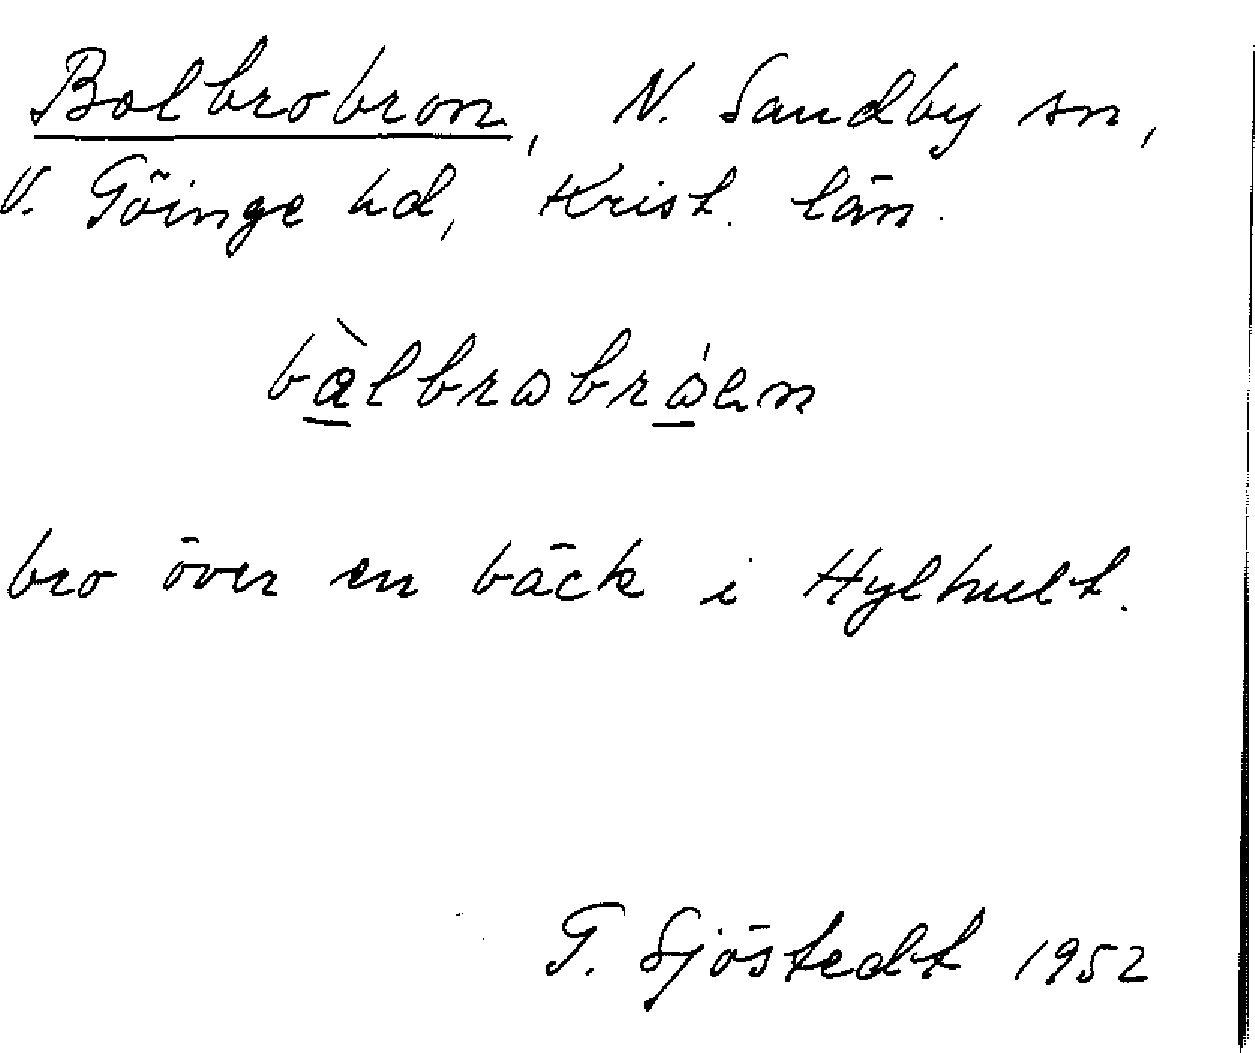 Bolbrobron, N. Sandby sn,
V. Göinge hd, Krist. län.
bàlbrobróen
bro över en bäck i Hylhult.
G. Sjöstedt 1952